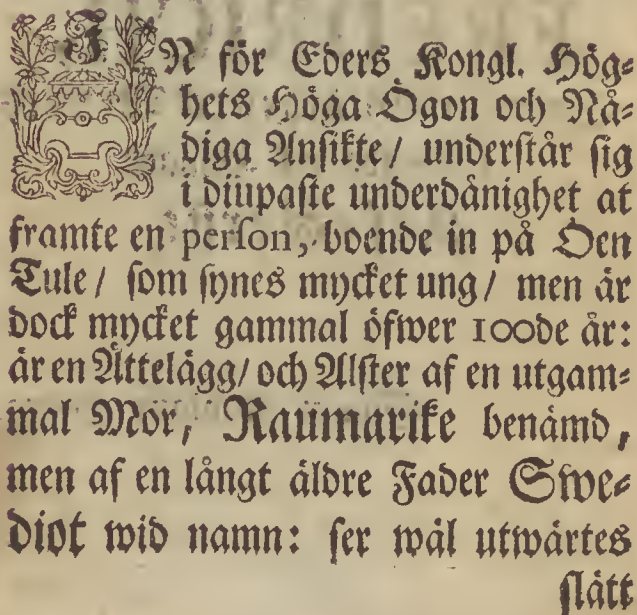 IN för Eders Kongl. Hög-
hets Höga Ögon och Nå-
diga Ansikte / understår sig
i diupaste underdånighet at
framte en person, boende in på Öen
Tule / som synes mycket ung / men är
dock mycket gammal öfwer 100de år:
är en Ättelägg / och Alster af en utgam-
mal Mor, Raumarike benämd,
men af en långt äldre Fader Swe-
diot wid namn: ser wäl utwärtes
slätt